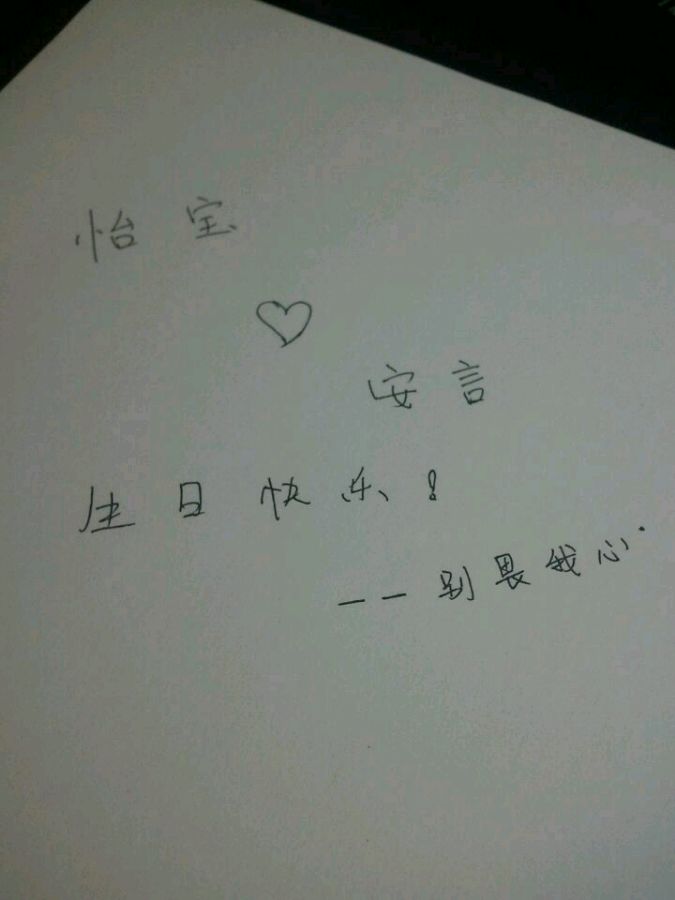 怡宝
♡
安言
生日快乐!
——别畏我心